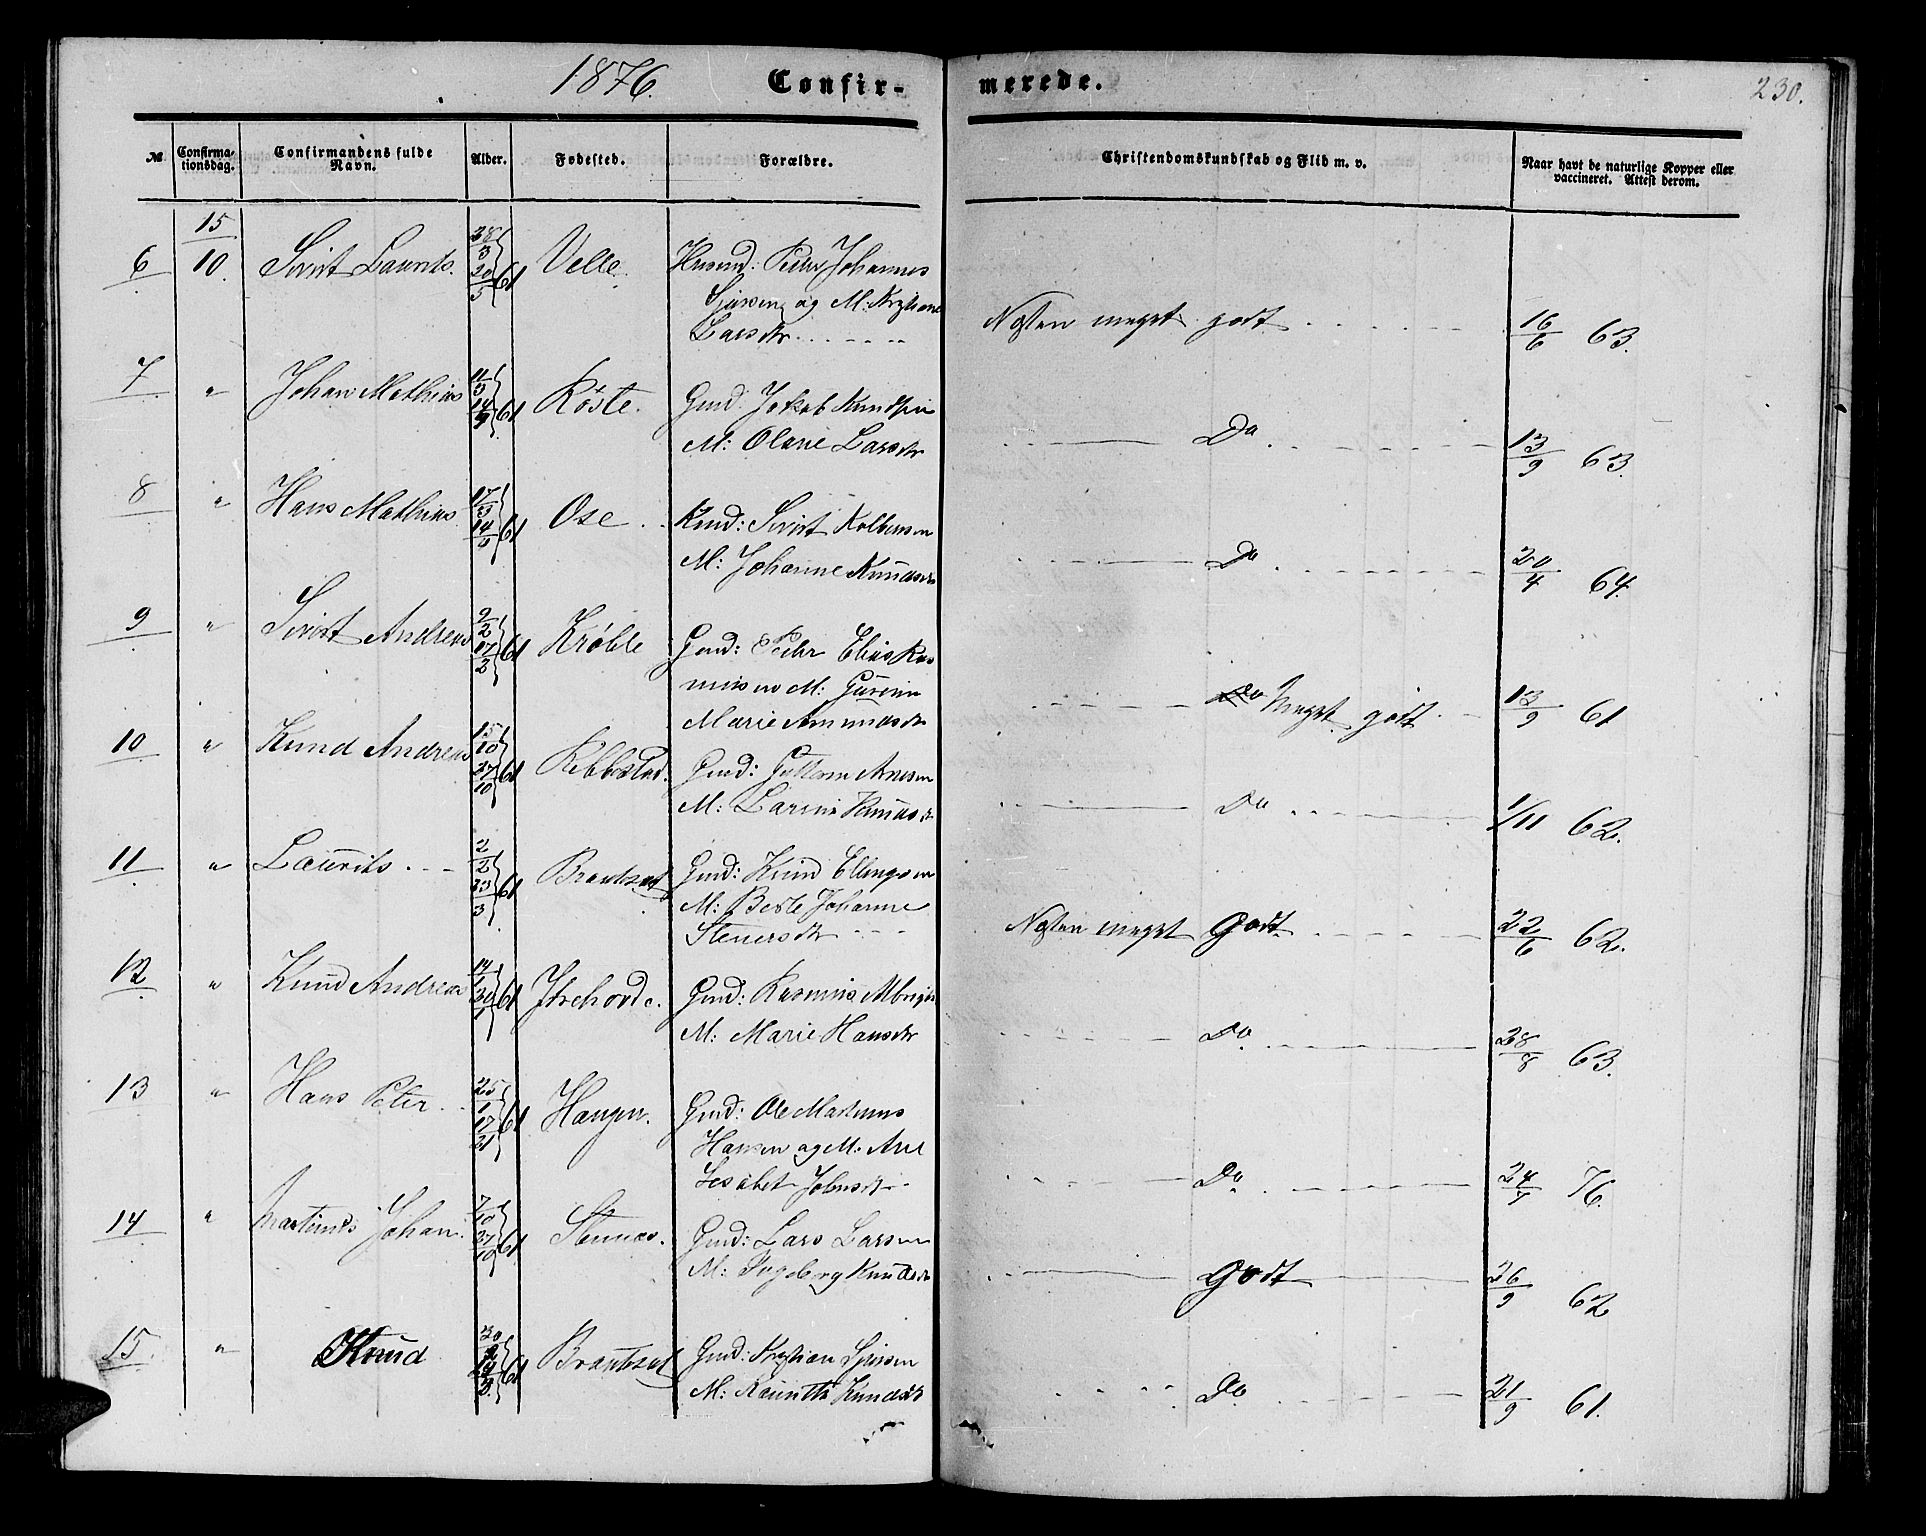 1876. Confir- merede. 230.
№ Confirma- tionsdag. Confirmandens fulde Navn. Alder. Fødested. Forældre. Christendomskundskab og Flid m. v. Naar havt de naturlige Kopper eller vaccineret. Attest derom.
6 15/10. Sivert Laurits. 28/3 20/5 61 Velle. Huusmd: Peder Johannes
Sjursen og M: Kristiane
Larsdtr. Næsten meget godt 16/6 63.
7 " Johan Mathias 11/3 14/4 61 Röste. Gmd. Jakob Knudsen
M: Oline Larsdtr Do. 13/9 63.
8 " Hans Mathias 17/3 14/4 61 Ose. Kmd: Sivert Kolbensen
M: Johanne Knudsdtr Do 20/4 64.
9 " Sivert Andreas 2/2 17/2 61 Krøble Gmd: Peder Elias Ras
musen M: Gurine
Marie Amundsdtr Do Meget godt. 13/9 61
10 " Knud Andreas 15/10 27/10 61 Gmd: Guttorm Arnesen
M: Larine Knudsdtr Do 1/11 62.
11 " Laurits 2/2 23/3 61 Brautset Gmd: Knud Ellingsen
M: Berte Johanne
Steners dtr Næsten meget Godt. 22/6 62.
12 " Knud Andreas 14/1 30/1 61 Ytrehovde. Gmd: Rasmus
M: Marie Hansdtr Do. 28/8 63.
13 " Hans Peter. 25/1 17/21 61 Haugen. Gmd: Ole Martinus
Hansen og M: Ane
Lisabet Johnsdtr Do. 24/9 76.
14 " Martinus Johan. 7/10 27/10 61 Stennes. Gmd: Lars Larsen
M: Ingeborg Knudsdtr Godt 26/9 62
15. " Knud 20/2 19/3 61 Brautset Gmd: Kristian Sjursen
M: Knudsdtr Do. 21/9 61.